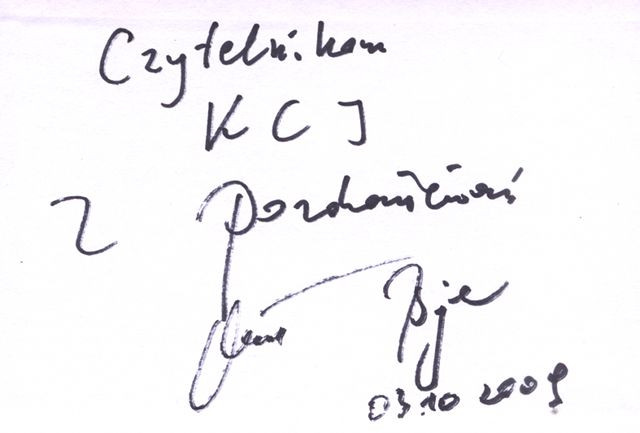 Czytelnikom
KCJ
Z pozdrowieniami
03.10 2009